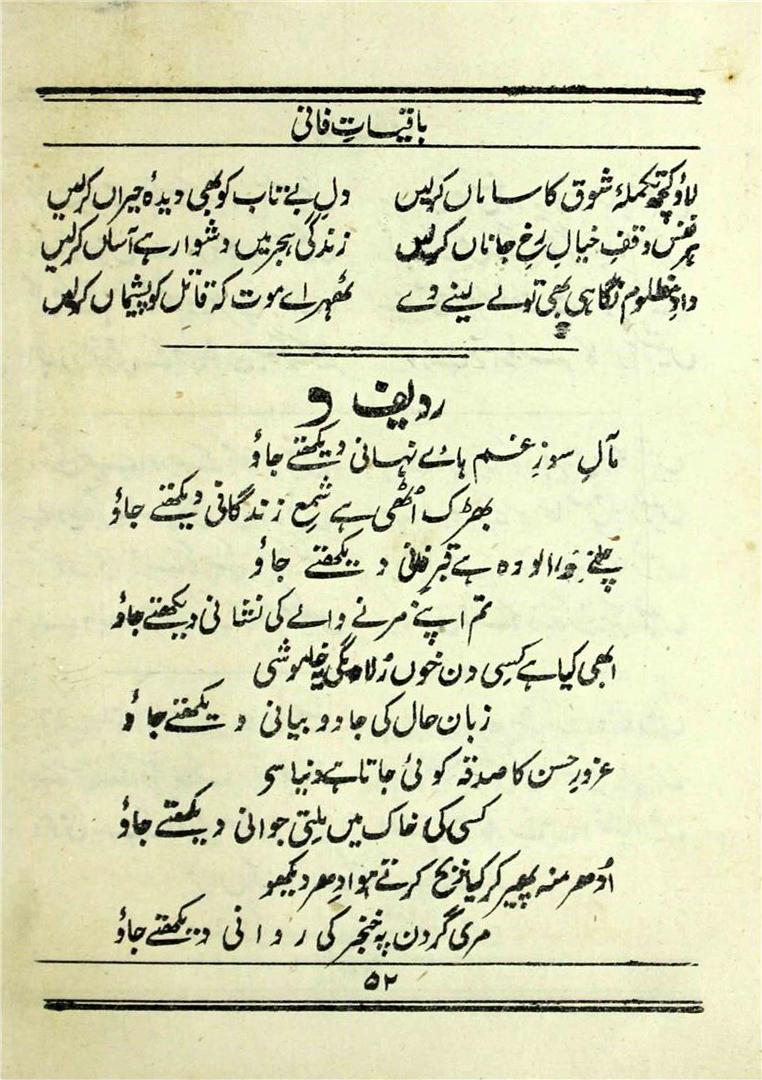 باقیاتِ فانی
لاؤ کچھ تکملۂ شوق کا ساماں کرلیں دلِ بے تاب کو بھی دیدۂ حیراں کرلیں
ہر نفس وقفِ خیالِ رخِ جاناں کرلیں زندگی ہجر میں دشوار ہے آساں کرلیں
دادِ مظلوم نگاہی بھی تولے لینے دے ٹھہر اے موت کہ قاتل کو پشیماں کرلیں
ردیف و
مآلِ سوزِ غم ہائے نہانی دیکھتے جاؤ
بھڑک اُٹھی ہے شمعِ زندگانی دیکھتے جاؤ
چلے بھی آؤ وہ ہے قبرِ فانی دیکھتے جاؤ
تم اپنے مرنے والے کی نشانی دیکھتے جاؤ
ابھی کیا ہے کسی دن خوں رُلائیگی یہ خاموشی
زبان حال کی جادو بیانی دیکھتے جاؤ
غرورِ حسن کا صدقہ کوئی جاتا ہے دنیا سے
کسی کی خاک میں ملتی جوانی دیکھتے جاؤ
اُدھر منہ پھیر کر کیا ذبح کرتے ہو ادھر دیکھو
مری گردن پہ خنجر کی روانی دیکھتے جاؤ
۵۲